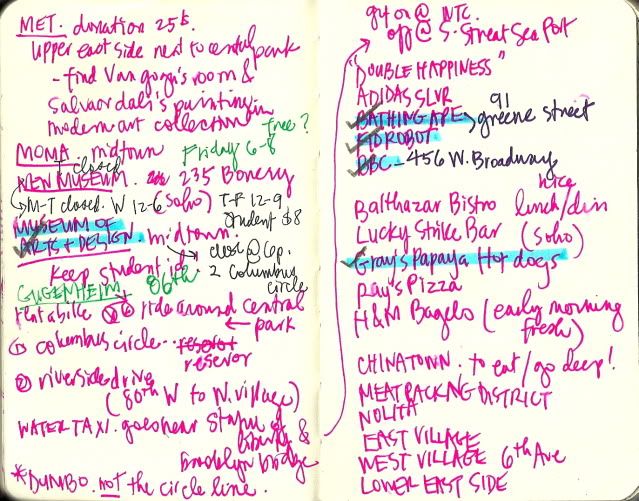 MET. donation 25¢.
upper east side next to central park
- find Van gogh's room &
Salvaor dali's painting in
modern art collection
free?
MOMA midtown Friday 6-8
T closed
NEW MUSEUM. 235 Bowery
→ M-T closed. W 12-6 (soho) T-F 12-9
student $8
MUSEUM OF
ARTS + DESIGN. midtown.
→ close @ 6p.
2 Columbus
circle
keep student id
GUGENHEIM 86th
rent a bike ride around central
park
① columbus circle..
reservor
② riverside drive
(80th W to W. village)
WATER TAXI. goes near Statue of
liberty &
brooklyn bridge
*DUMBO. not the circle line.
get on @ WTC.
off @ S. Street Sea Port
"DOUBLE HAPPINESS"
ADIDAS SLVR
BATHING APE > 91
greene street
KIDROBOT
BBC - 456 W. Broadway
Balthazar Bistro nice
lunch/din
Lucky Strike Bar (soho)
Gray's Papaya Hot dogs
Ray's Pizza
H&M Bagels (early morning
fresh)
CHINATOWN. to eat/go deep!
MEATPACKING DISTRICT
NOLITA
EAST VILLAGE
WEST VILLAGE 6th Ave
LOWER EAST SIDE